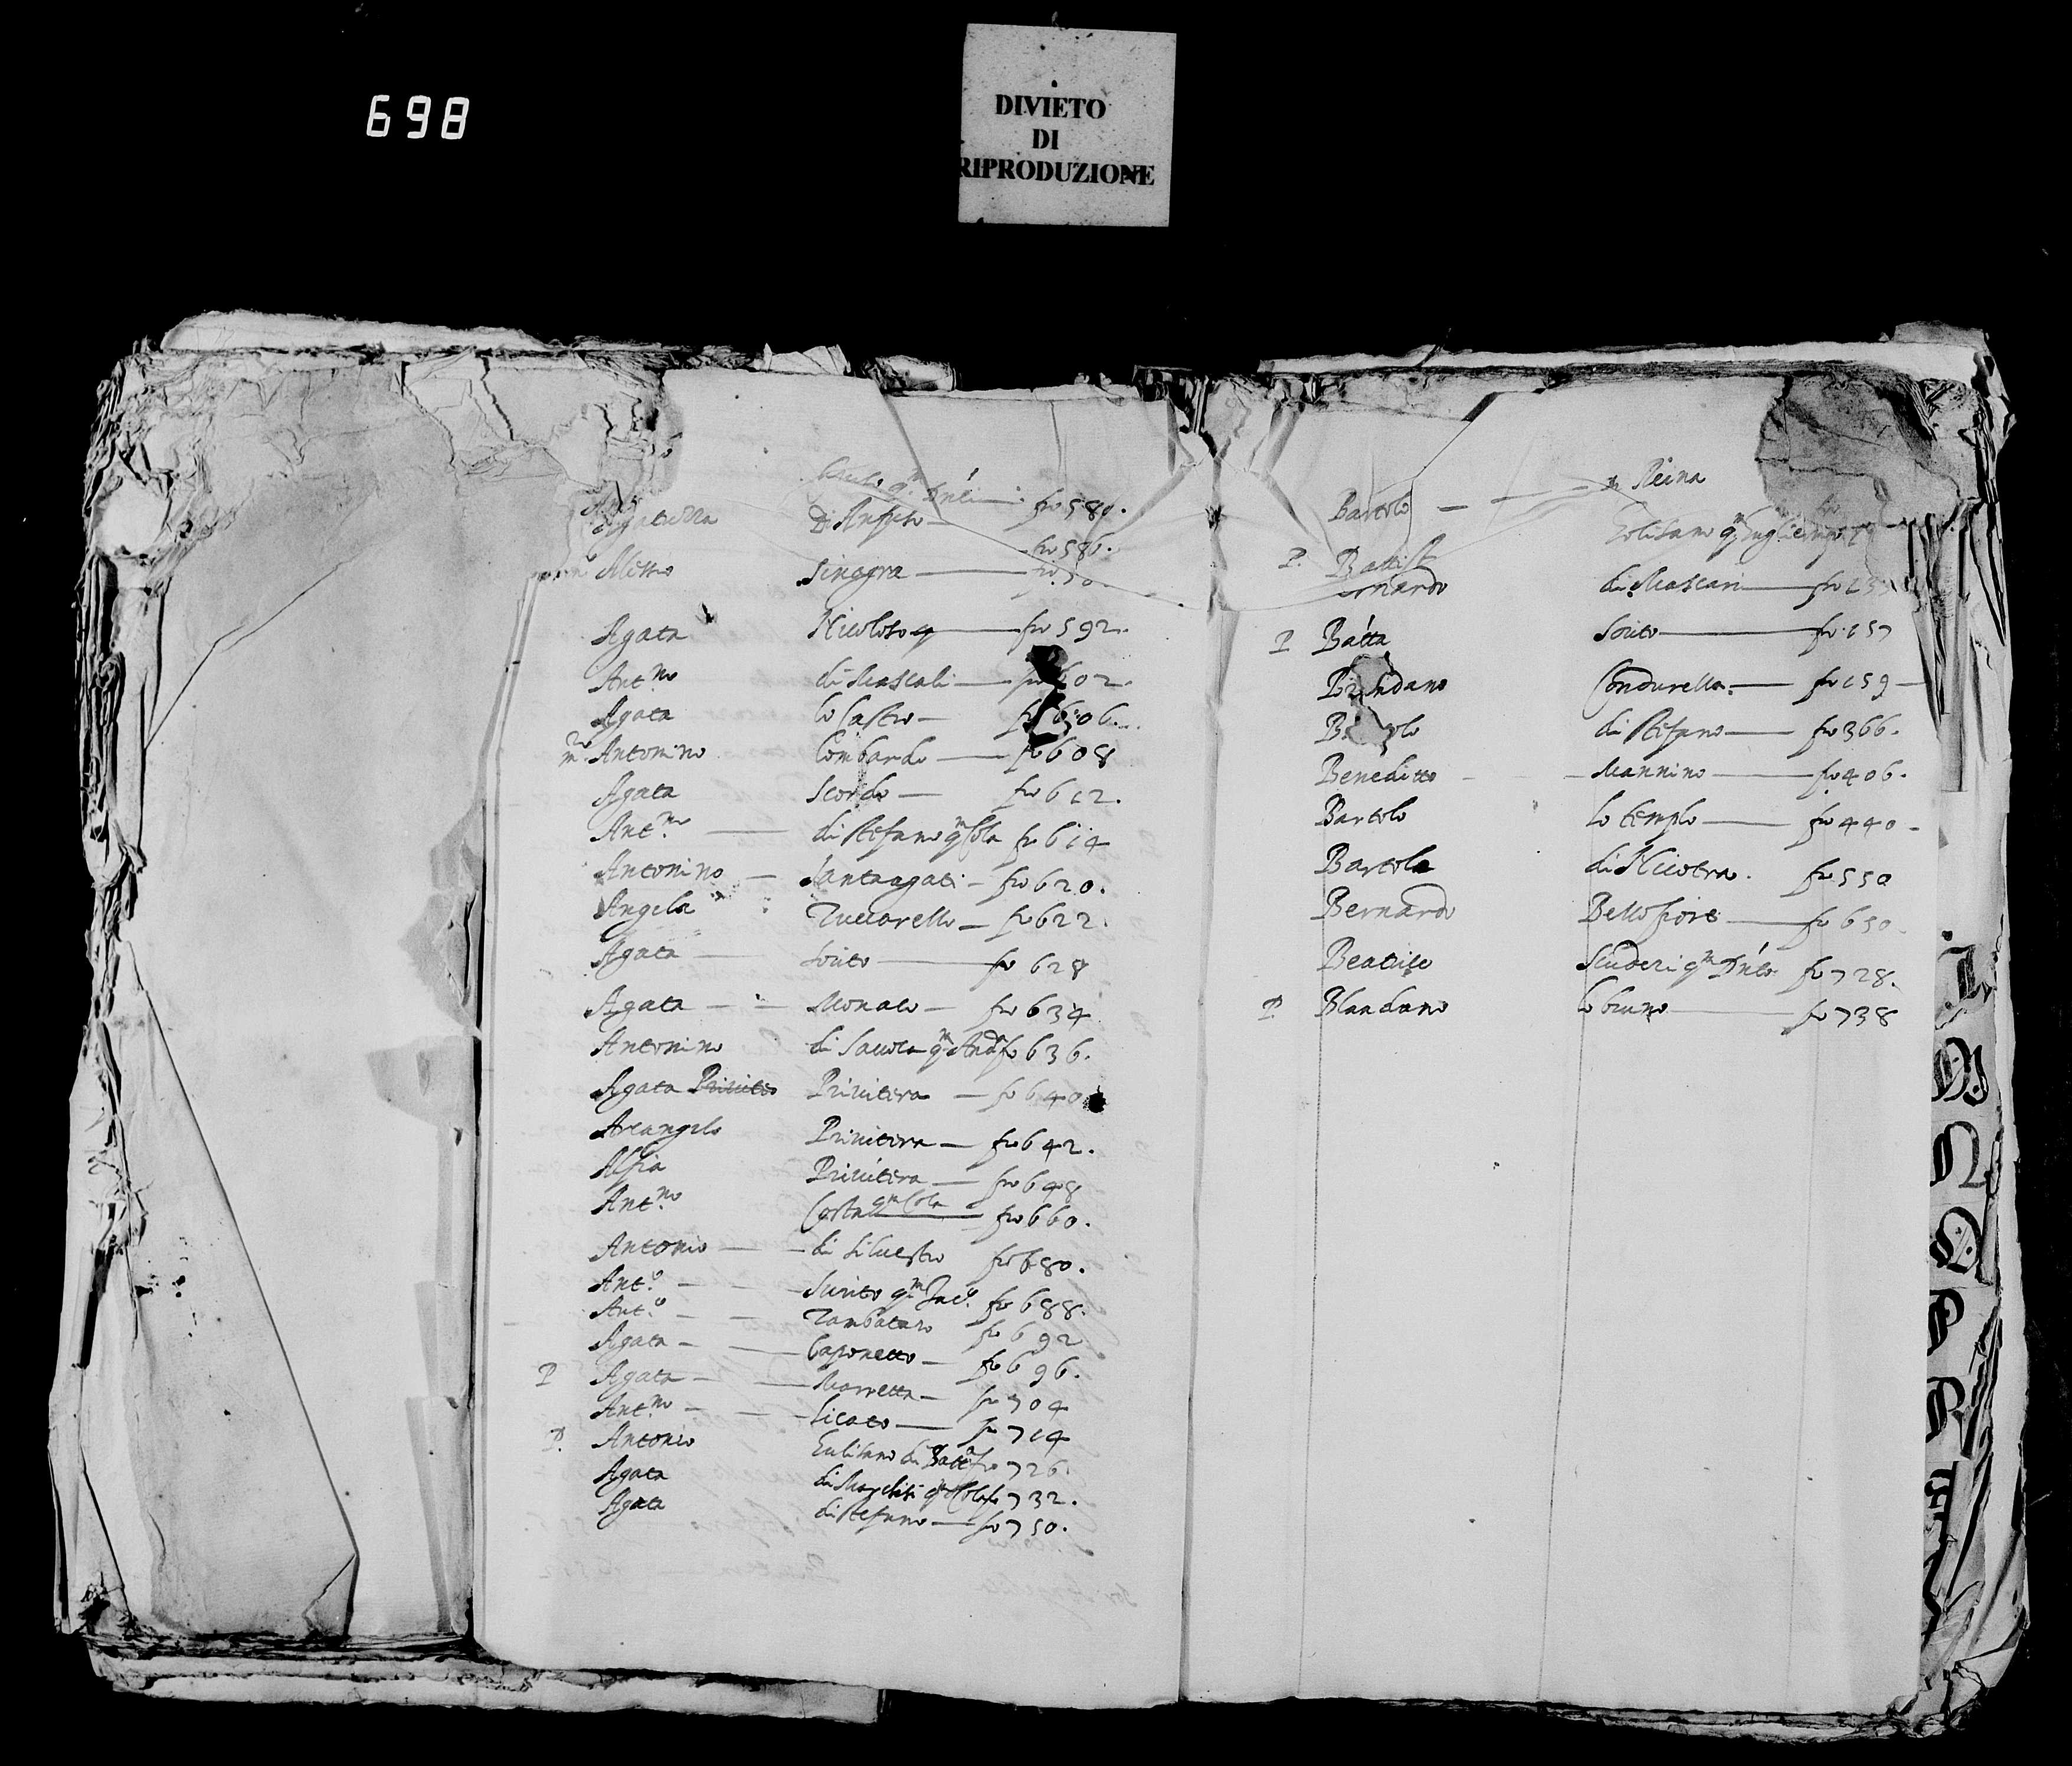 698
DIVIETO
DI
RIPRODUZIONE
fo 580.
Agatuzza
fo 586.
Alessio Sinagra
Agata Nicoloso fo 592.
Ant.no di Mascali fo 602.
Agata lo Castro fo 606.
m.ro Antonino Lombardo fo 608
Agata Scordo fo 612.
Ant.no di Stefano q.m Cola fo 614
Antonino Santaagati fo 620.
Angela Zuccarello fo 622.
Agata fo 628
Agata Monaco fo 634
Antonino di q.m And.a fo 636.
Agata Privitera fo 640
Arcangelo Privitera fo 642.
Alfia Privitera fo 648
Ant.no Costa q.m Cola fo 660.
Antonio di Silvestro fo 680.
Ant.o q.m Jac.o fo 688.
Ant.o Zambataro fo 692
Agata Caponetto fo 696.
P Agata Marretta fo 704
Ant.no Licato fo 714
P. Antonio di Batt.a fo 726.
Agata q.m Cola fo 732.
Agata di Stefano fo 750.
Bartolo Reina
P. Battist
ernardo di Mascari
P Batta fo 157
Condurella fo 159
di Stefano fo 366.
Beneditto Mannino fo 406.
Bartolo lo templo fo 440
Bartola di Nicotra. fo 550
Bernardo Bellofiore fo 650.
Beatrice Scuderi q.m fo 728.
P. Blandano lo bruno fo 738
L
M
N
O
P
R